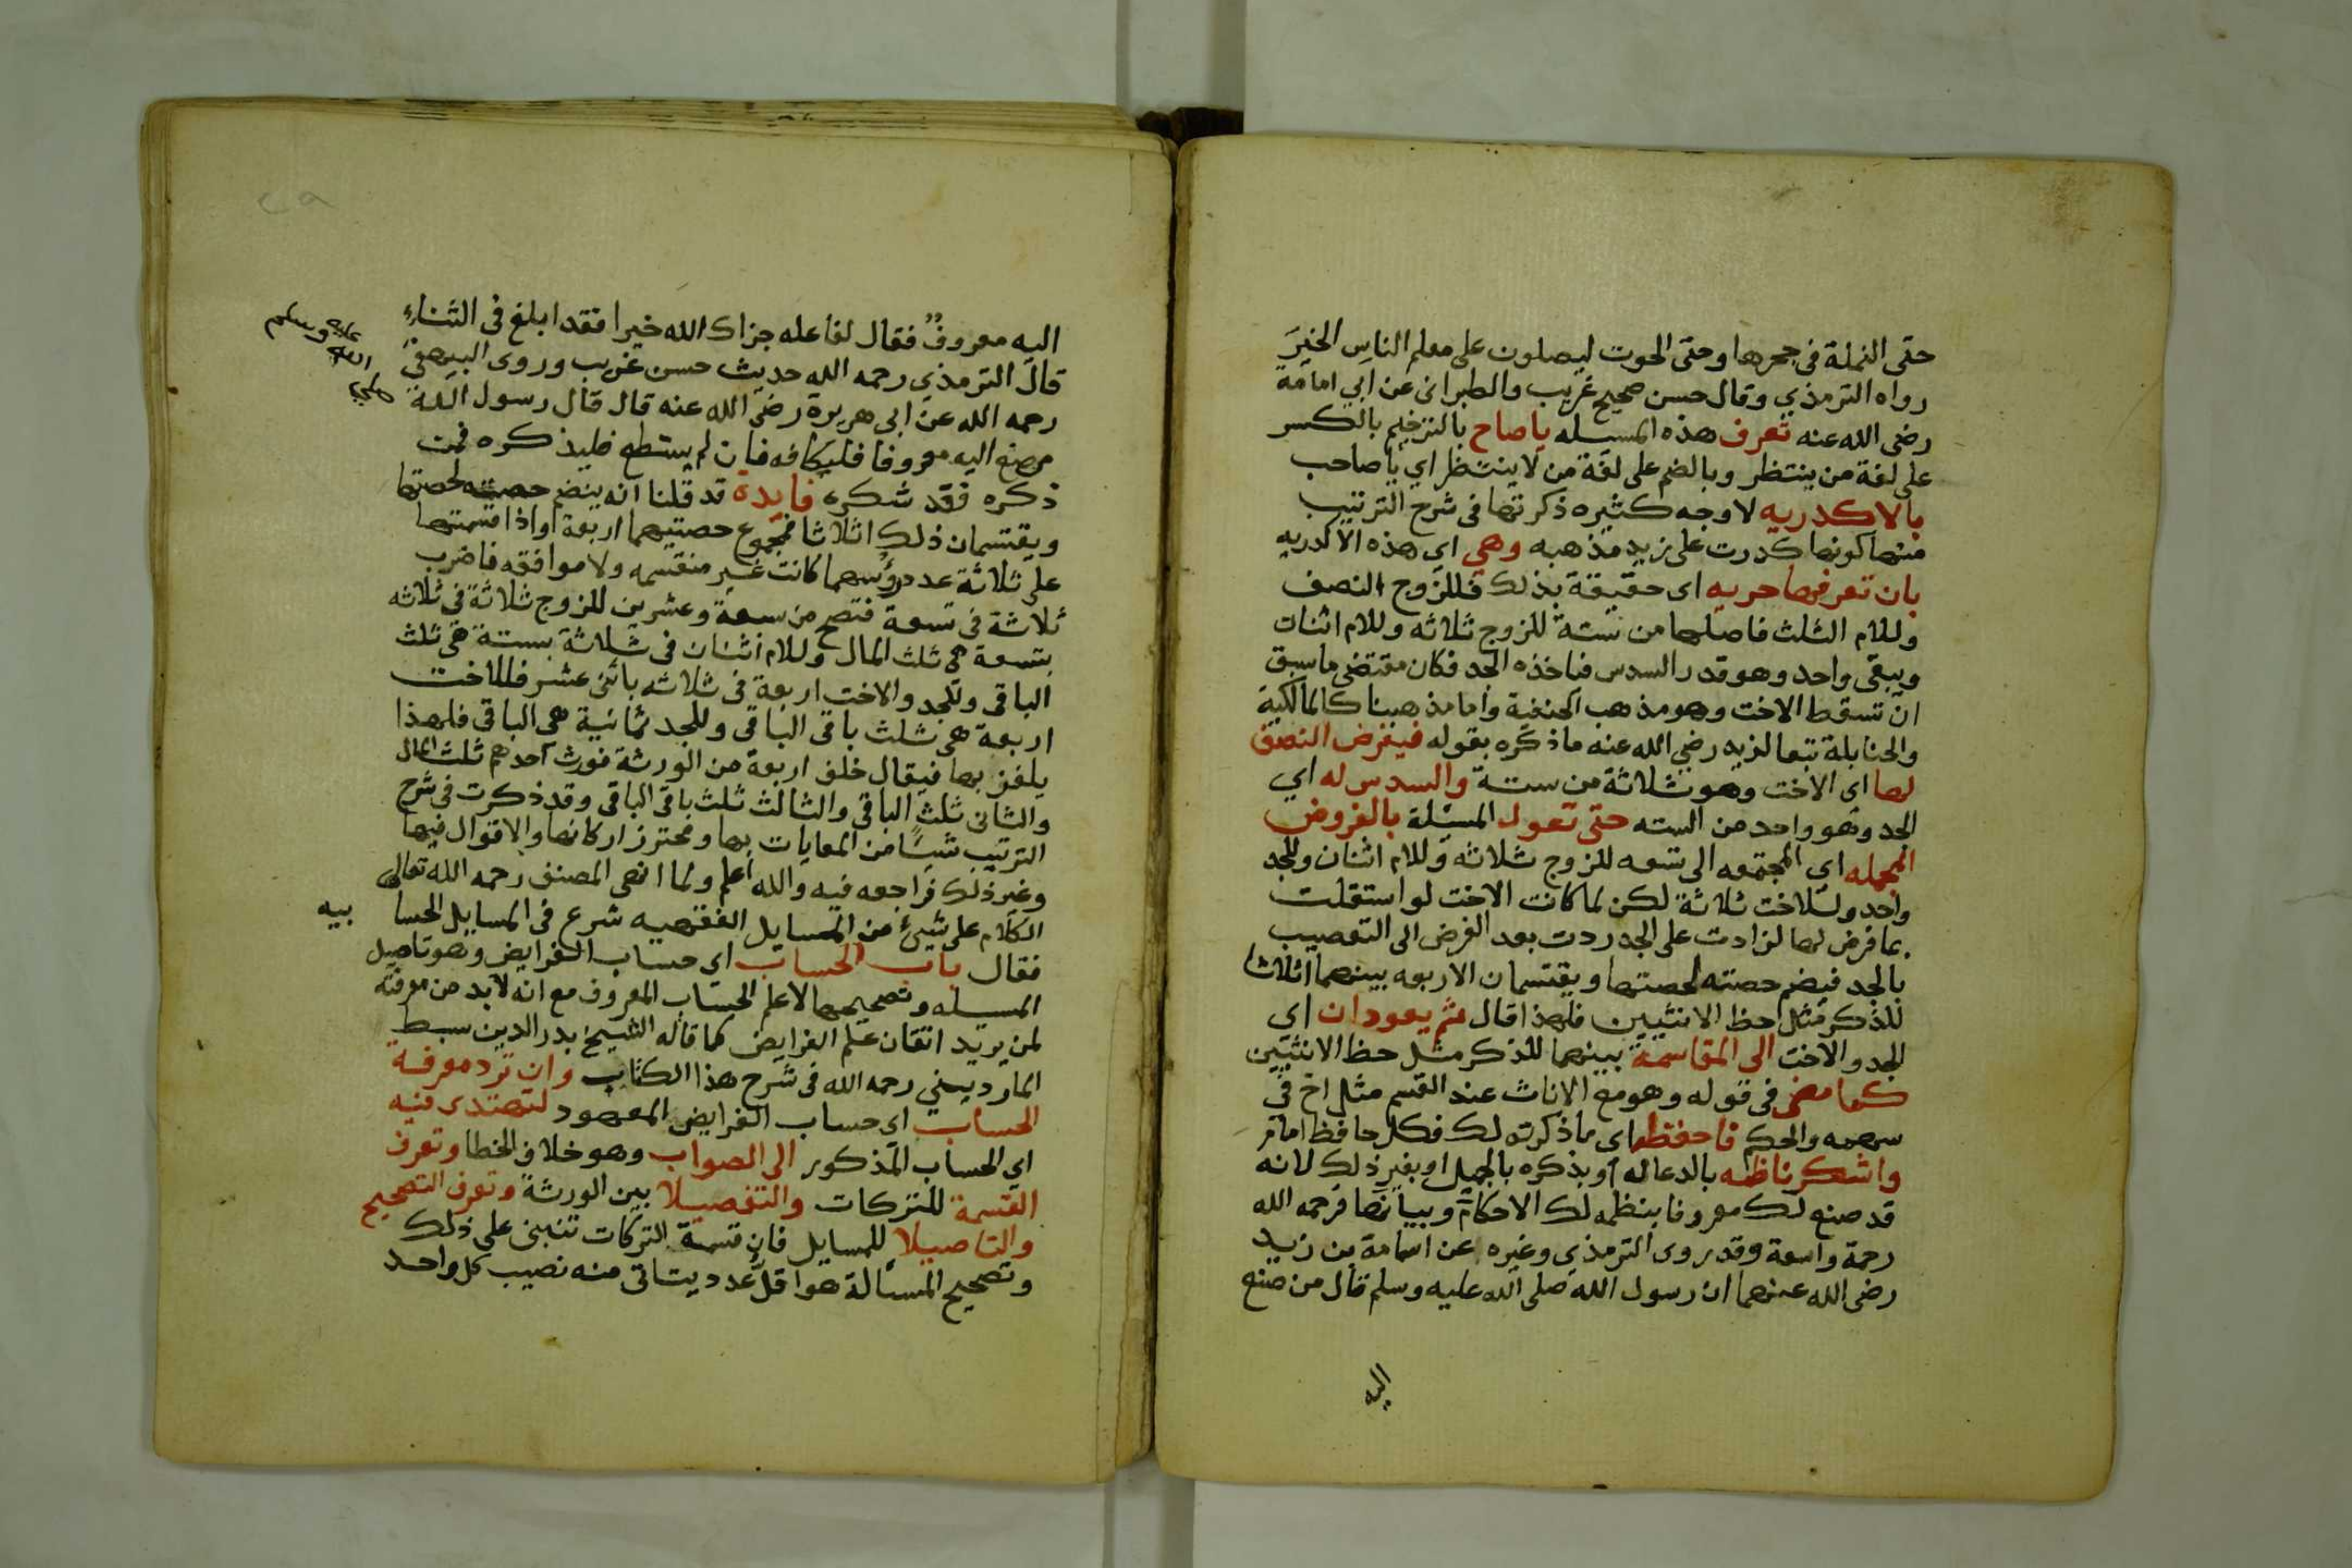 حتى النملة في جحرها وحتى الحوت ليصلون على معلم الناس الخيرَ
رواه الترمذي وقال حسن صحيح غريب والطبراني عن ابي امامة
رضى الله عنه تعرف هذه المسئله ياصاح بالترخيم بالكسر
على لغة من ينتظر وبالضم على لغة من لا ينتظر اي يا صاحب
بالاكدريه لاوجه كثيره ذكرتها في شرح الترتيب
منها كونها كدرت على زيد مذهبه وهي اي هذه الاكدريه
بان تعرفها حريه اى حقيقة بذلك فللزوج النصف
وللام الثلث فاصلها من ستة للزوج ثلاثه وللام اثنان
ويبقى واحد وهو قدر السدس فناخذه الجد فكان مقتضى ما سبق
ان تسقط الاخت وهو مذهب الحنفية واما مذهبنا كالمالكية
والحنابلة تبعا لزيد رضي الله عنه ما ذكره بقوله فيفرض النصف
لها اى الاخت وهو ثلاثة من ستة والسدس له اي
الجد وهو واحد من السته حتى تعول المسئلة بالفروض
المجمله اي المجتمعه الى تسعه للزوج ثلاثه وللام اثنان وللجد
واحد وللاخت ثلاثة لكن لما كانت الاخت لو استقلت
بما فرض لها لزادت على الجد ردت بعد الفرض الى التعصيب
بالجد فيضم حصته لحصتها ويقتسمان الاربعه بينهما اثلاثا
للذكر مثل حظ الانثيين فلهذا قال ثم يعودان اي
الجد والاخت الى المقاسمة بينهما للذكر مثل حظ الانثيين
كما مضى في قوله وهو مع الاناث عند القسم مثل اخ في
سهمه والحكم فاحفظه اى ما ذكرته لك فكل حافظ امام
واشكر ناظمه بالدعا له او بذكره بالجميل او بغير ذلك لانه
قد صنع لك معروفا بنظمه لك الاحكام وبيانها فرحمه الله
رحمة واسعة وقد روى الترمذي وغيره عن اسامة بن زيد
رضى الله عنهما ان رسول الله صلى الله عليه وسلم قال من صنع
اليه
اليه معروفٌ فقال لفاعله جزاك الله خيرا فقد ابلغ في الثناء
قال الترمذي رحمه الله حديث حسن غريب وروى البيهقي
رحمه الله عن ابي هريرة رضى الله عنه قال قال رسول الله صلى الله عليه وسلم
من صنع اليه معروفا فليكافه فان لم يستطع فليذكره فمن
ذكره فقد شكره فايدة قد قلنا انه ينضم حصته لحصتها
ويقتسمان ذلك اثلاثا فمجموع حصتيهما اربعة واذا قسمتها
على ثلاثة عدد رؤسهما كانت غير منقسمه ولا موافقه فاضرب
ثلاثة في تسعة فتصح من سبعة وعشرين للزوج ثلاثة في ثلاثه
بتسعة هي ثلث المال وللام اثنان في ثلاثة بستة هي ثلث
الباقى وللجد والاخت اربعة في ثلاثه باثنى عشر فللاخت
اربعة هى ثلث باقى الباقي وللجد ثمانية هى الباقى فلهذا
يلغز بها فيقال خلف اربعة من الورثة فورث احدهم ثلث المال
والثانى ثلث الباقي والثالث ثلث باقى الباقى وقد ذكرت في شرح
الترتيب شيئًا من المعايات بها ومحترز اركانها والاقوال فيها
وغير ذلك فراجعه فيه والله اعلم ولما انهى المصنف رحمه الله تعالى
الكلام على شيئ من المسايل الفقهيه شرع في المسايل الحسا بيه
فقال باب الحساب اى حساب الفرايض وهو تاصيل
المسئله وتصحيحها لا علم الحساب المعروف مع انه لابد من معرفته
لمن يريد اتقان علم الفرايض كما قاله الشيخ بدر الدين سبط
المارديني رحمه الله في شرح هذا الكتاب وان ترد معرفة
الحساب اى حساب الفرايض المعهود لتهتدى فيه
اي الحساب المذكور الى الصواب وهو خلاف الخطا وتعرف
القسمة للتركات والتفصيلا بين الورثة وتعرف التصحيح
والتاصيلا للمسايل فان قسمة التركات تنبنى على ذلك
وتصحيح المسألة هو اقل عدد يتاتى منه نصيب كل واحد